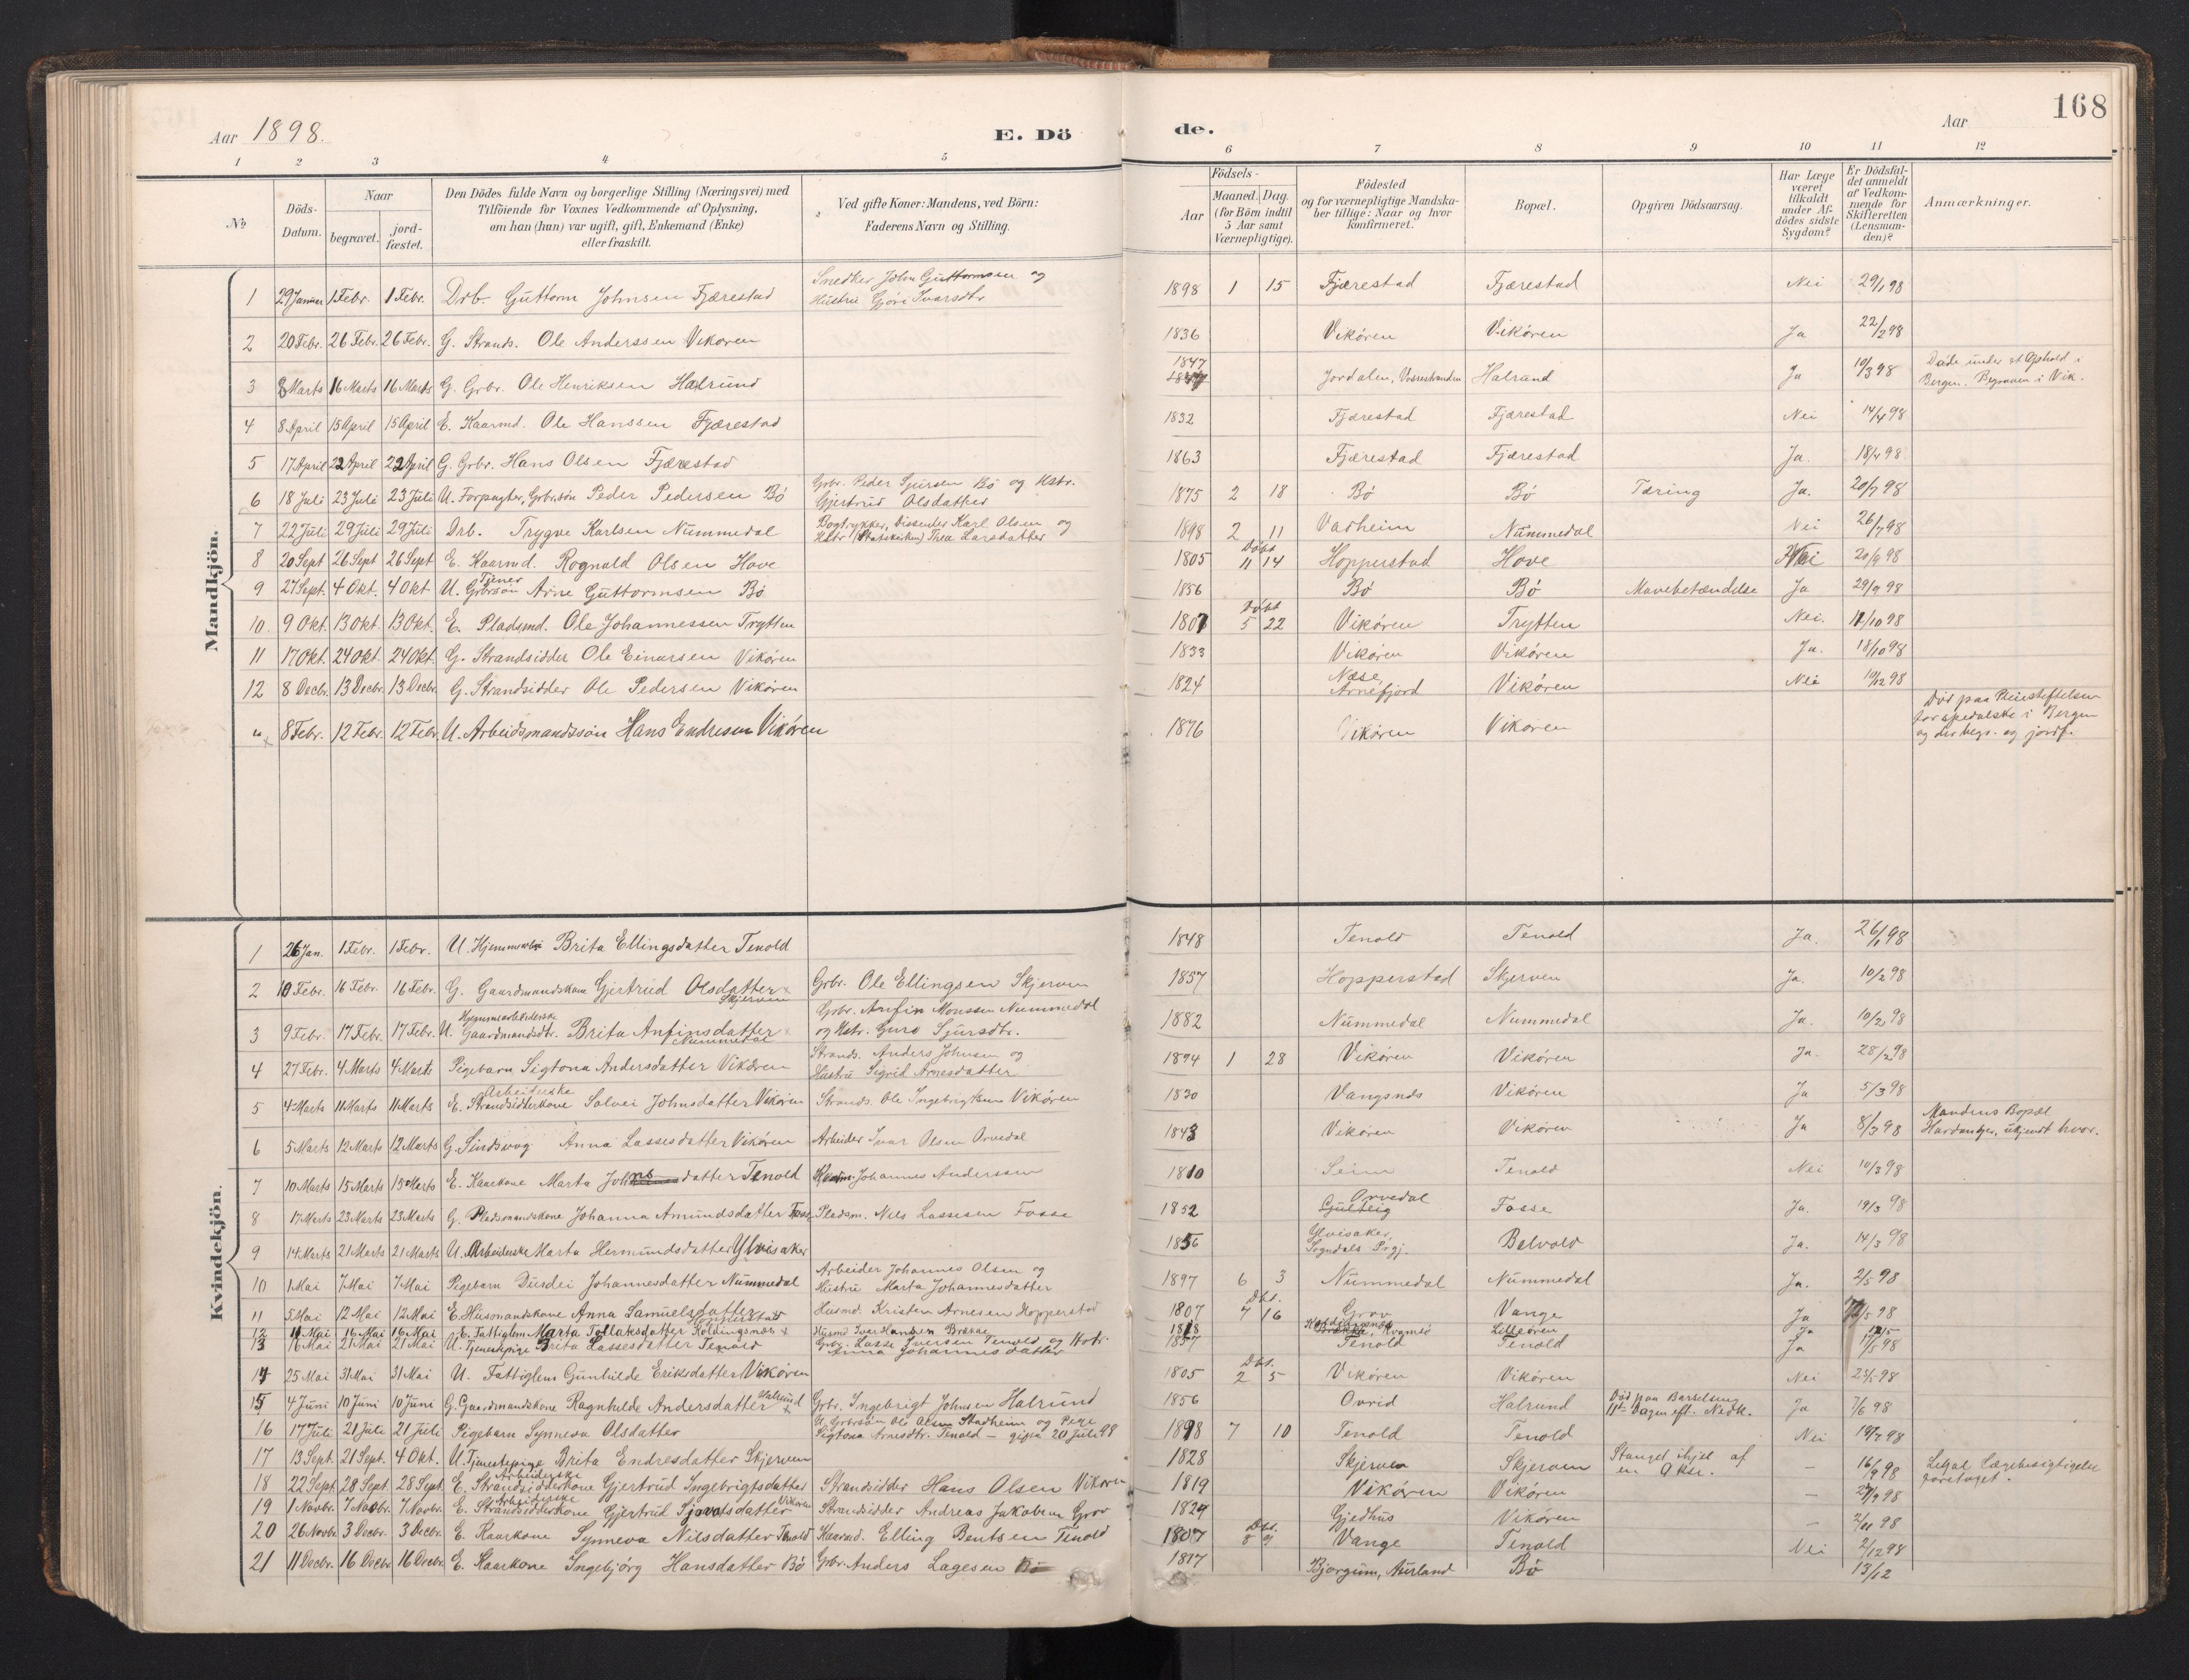 168
Aar 1898. E. Dö de. Aar
1 2 3 4 5 6 7 8 9 10 11 12
№ Döds-Datum. Naar begravet. jord-fæstet. Den Dödes fulde Navn og borgerlige Stilling (Næringsvei) med Tilföiende for Voxnes Vedkommende af Oplysning, om han (hun) var ugift, gift, Enkemand (Enke) eller fraskilt. Ved gifte Koner: Mandens, ved Börn: Faderens Navn og Stilling. Födsels- Aar Maaned. Dag. (for Börn indtil 5 Aar samt Værnepligtige). Födested og for værnepligtige Mandska-ber tillige: Naar og hvor konfirmeret. Bopæl. Opgiven Dödsaarsag. Har Læge været tilkaldt under Af-dödes sidste Sygdom? Er Dödsfal-det anmeldt af Vedkom-mende for Skifteretten (Lensman-den)? Anmærkninger.
Mandkjön.
1 29 Januar 1 Febr. 1 Febr. Drb. Guttorm Johnsen Fjærestad Snedker John Guttormsen og Hustru Gjöri Ivarsdtr 1898 1 15 Fjærestad Fjærestad Nei 29/1 98
2 20 Febr. 26 Febr. 26 Febr. G. Strands. Ole Anderssen Vikøren 1836 Vikøren Vikøren Ja 22/2 98
3 8 Marts 16 Marts 16 Marts G. Grbr. Ole Henriksen Halrund 1847 Jordalen, Vossestranden Halrund Ja 10/3 98 Døde under et Ophold i Bergen. Begraven i Vik.
4 8 April 15 April 15 April E. Kaarmd. Ole Hanssen Fjærestad 1832 Fjærestad Fjærestad Nei 14/4 98
5 17 April 22 April 22 April G. Grbr. Hans Olsen Fjærestad 1863 Fjærestad Fjærestad Ja. 18/4 98
6 18 Juli 23 Juli 23 Juli U. Forpagter, Grbr.søn Peder Pedersen Bø Grbr. Peder Sjursen Bø og Hstr. Gjertrud Olsdatter 1875 2 18 Bø Bø Tæring Ja. 20/7 98
7 22 Juli 29 Juli 29 Juli Drb. Trygve Karlsen Nummedal Bogtrykker, Dissenter Karl Olsen og Hstr. (Statskirken) Thea Larsdatter 1898 2 11 Vadheim Nummedal Nei 26/7 98
8 20 Sept 26 Sept 26 Sept E. Kaarmd. Rognald Olsen Hove 1805 Døbt 11 14 Hopperstad Hove Nei 20/9 98
9 27 Sept. 4 Okt. 4 Okt U. Tjener Grbrsøn Arne Guttormsen Bø 1856 Bø Bø Mavebetændelse Ja 29/9 98
10. 9 Okt. 13 Okt. 13 Okt. E. Pladsmd. Ole Johannessen Trytten 1807 Døbt 5 22 Vikøren Trytten Nei. 11/10 98
11 17 Okt. 24 Okt. 24 Okt. G. Strandsidder Ole Einarsen Vikøren 1833 Vikøren Vikøren Ja. 18/10 98
12 8 Decbr. 13 Decbr. 13 Decbr. G. Strandsidder Ole Pedersen Vikøren 1824 Næse, Arnefjord Vikøren Nei 10/12 98
8 Febr. 12 Febr. 12 Febr. U. Arbeidsmandssøn Hans Endresen Vikøren 1876 Vikøren Vikøren Død paa Pleiestiftelsen for spedalske i Bergen og der begr. og jordf.
Kvindekjön.
1 26 Jan. 1 Febr. 1 Febr. U. Brita Ellingsdatter Tenold 1848 Tenold Tenold Ja. 26/1 98
2 10 Febr. 16 Febr. 16 Febr. G. Gaardmandskone Gjertrud Olsdatter Skjerven Grbr. Ole Ellingsen Skjerven 1857 Hopperstad Skjerven Ja. 10/2 98
3 9 Febr. 17 Febr. 17 Febr. U. Hjemmearbeiderske Gaardmandsdtr. Brita Anfinsdatter Nummedal Grbr. Anfin Monssen Nummedal og Hstr. Guro Sjursdtr. 1882 Nummedal Nummedal Ja. 10/2 98
4 27 Febr. 4 Marts 4 Marts Pigebarn Sigtona Andersdatter Vikøren Strands. Anders Johnsen og Hustru Sigrid Arnesdatter 1894 1 28 Vikøren Vikøren Ja. 28/2 98
5 4 Marts 11 Marts 11 Marts E. Arbeiderske Strandsidderkone Solvei Johnsdatter Vikøren Strands. Ole Ingebrigtsen Vikøren 1830 Vangsnæs Vikøren Ja 5/3 98
6 5 Marts 12 Marts 12 Marts G. Sindssvag Anna Lassesdatter Vikøren Arbeider Ivar Olsen Orvedal 1843 Vikøren Vikøren Ja 8/3 98 Mandens Bopæl Hardanger, ukjendt hvor.
7 10 Marts 15 Marts 15 Marts E. Kaarkone Marta Johnsdatter Tenold Johannes Anderssen 1810 Seim Tenold Nei 10/3 98
8 17 Marts 23 Marts 23 Marts G. Pladsmandskone Johanna Amundsdatter Fosse Pladsm. Nils Lassesen Fosse 1852 Orvedal Fosse Ja. 19/3 98
9 14 Marts 21 Marts 21 Marts U. Arbeiderske Marta Hermundsdatter Ylvisaker 1856 Ylvisaker, Sogndals Prgj. Bolvold Ja. 14/3 98
10 1 Mai 7 Mai 7 Mai Pigebarn Durdei Johannesdatter Nummedal Arbeider Johannes Olsen og Hustru Marta Johannesdatter 1897 6 3 Nummedal Nummedal Ja. 2/5 98
11 5 Mai 12 Mai 12 Mai E. Husmandskone Anna Samuelsdatter Hopperstad Husmd. Kristen Arnesen Hopperstad 1807 Dbt. 7 16 Grov Vange Ja /5 98
12 11 Mai 16 Mai 16 Mai E. Fattiglem Marta Tollaksdatter Koldingsnæs Husmd Ivar Hansen Brække 1818 Kvamsø Lilleøren Ja 12/5
13 16 Mai 21 Mai 21 Mai U. Tjenestepige Brita Lassesdatter Tenold Grbr. Lasse Iversen Tenold og Hstr. Anna Johannesdatter 1857 Tenold Tenold Ja 17/5 98
14 25 Mai 31 Mai 31 Mai U. Fattiglem Gunhilde Eriksdatter Vikøren 1805 Dbt. 2 5 Vikøren Vikøren Nei 25/5 98
15 4 Juni 10 Juni 10 Juni G. Gaardmandskone Ragnhilde Andersdatter Halrund Grbr. Ingebrigt Johnsen Halrund 1856 Ovrid Halrund Død paa Barselseng 11te Dagen eft. Nedk. Ja 7/6 98
16 17 Juli 21 Juli 21 Juli Pigebarn Synneva Olsdatter U. Grbrsøn Ole Olsen Stadheim og Pige Sigtona Arnesdtr. Tenold – gifte 20 Juli 98 1898 7 10 Tenold Tenold Nei 19/7 98
17 13 Sept. 21 Sept. 4 Okt. U. Tjenestepige Brita Endresdatter Skjerven 1828 Skjerven Skjerven Stanget ihjel af en Okse. – 16/9 98 Legal Lægebesigtigelse foretaget.
18 22 Sept. 28 Sept. 28 Sept. E. Arbeiderske Strandsidderkone Gjertrud Ingebrigtsdatter Strandsidder Hans Olsen Vikøren 1819 Vikøren Vikøren – 27/9 98
19 1 Novbr. 7 Novbr. 7 Novbr. E. Arbeiderske Strandsidderkone Gjertrud Sjovatsdatter Vikøren Strandsidder Andreas Jakobsen Grov 1824 Gjedhus Vikøren – 2/11 98
20 26 Novbr. 3 Decbr. 3 Decbr. E. Kaarkone Synneva Nilsdatter Tenold Kaarmd. Elling Bentsen Tenold 1807 Dbt. 8 9 Vange Tenold Nei 2/12 98
21 11 Decbr. 16 Decbr. 16 Decbr. E. Kaarkone Ingebjørg Hansdatter Bø Grbr. Anders Lagesen Bø 1817 Bjørgum, Aurland Bø 13/12